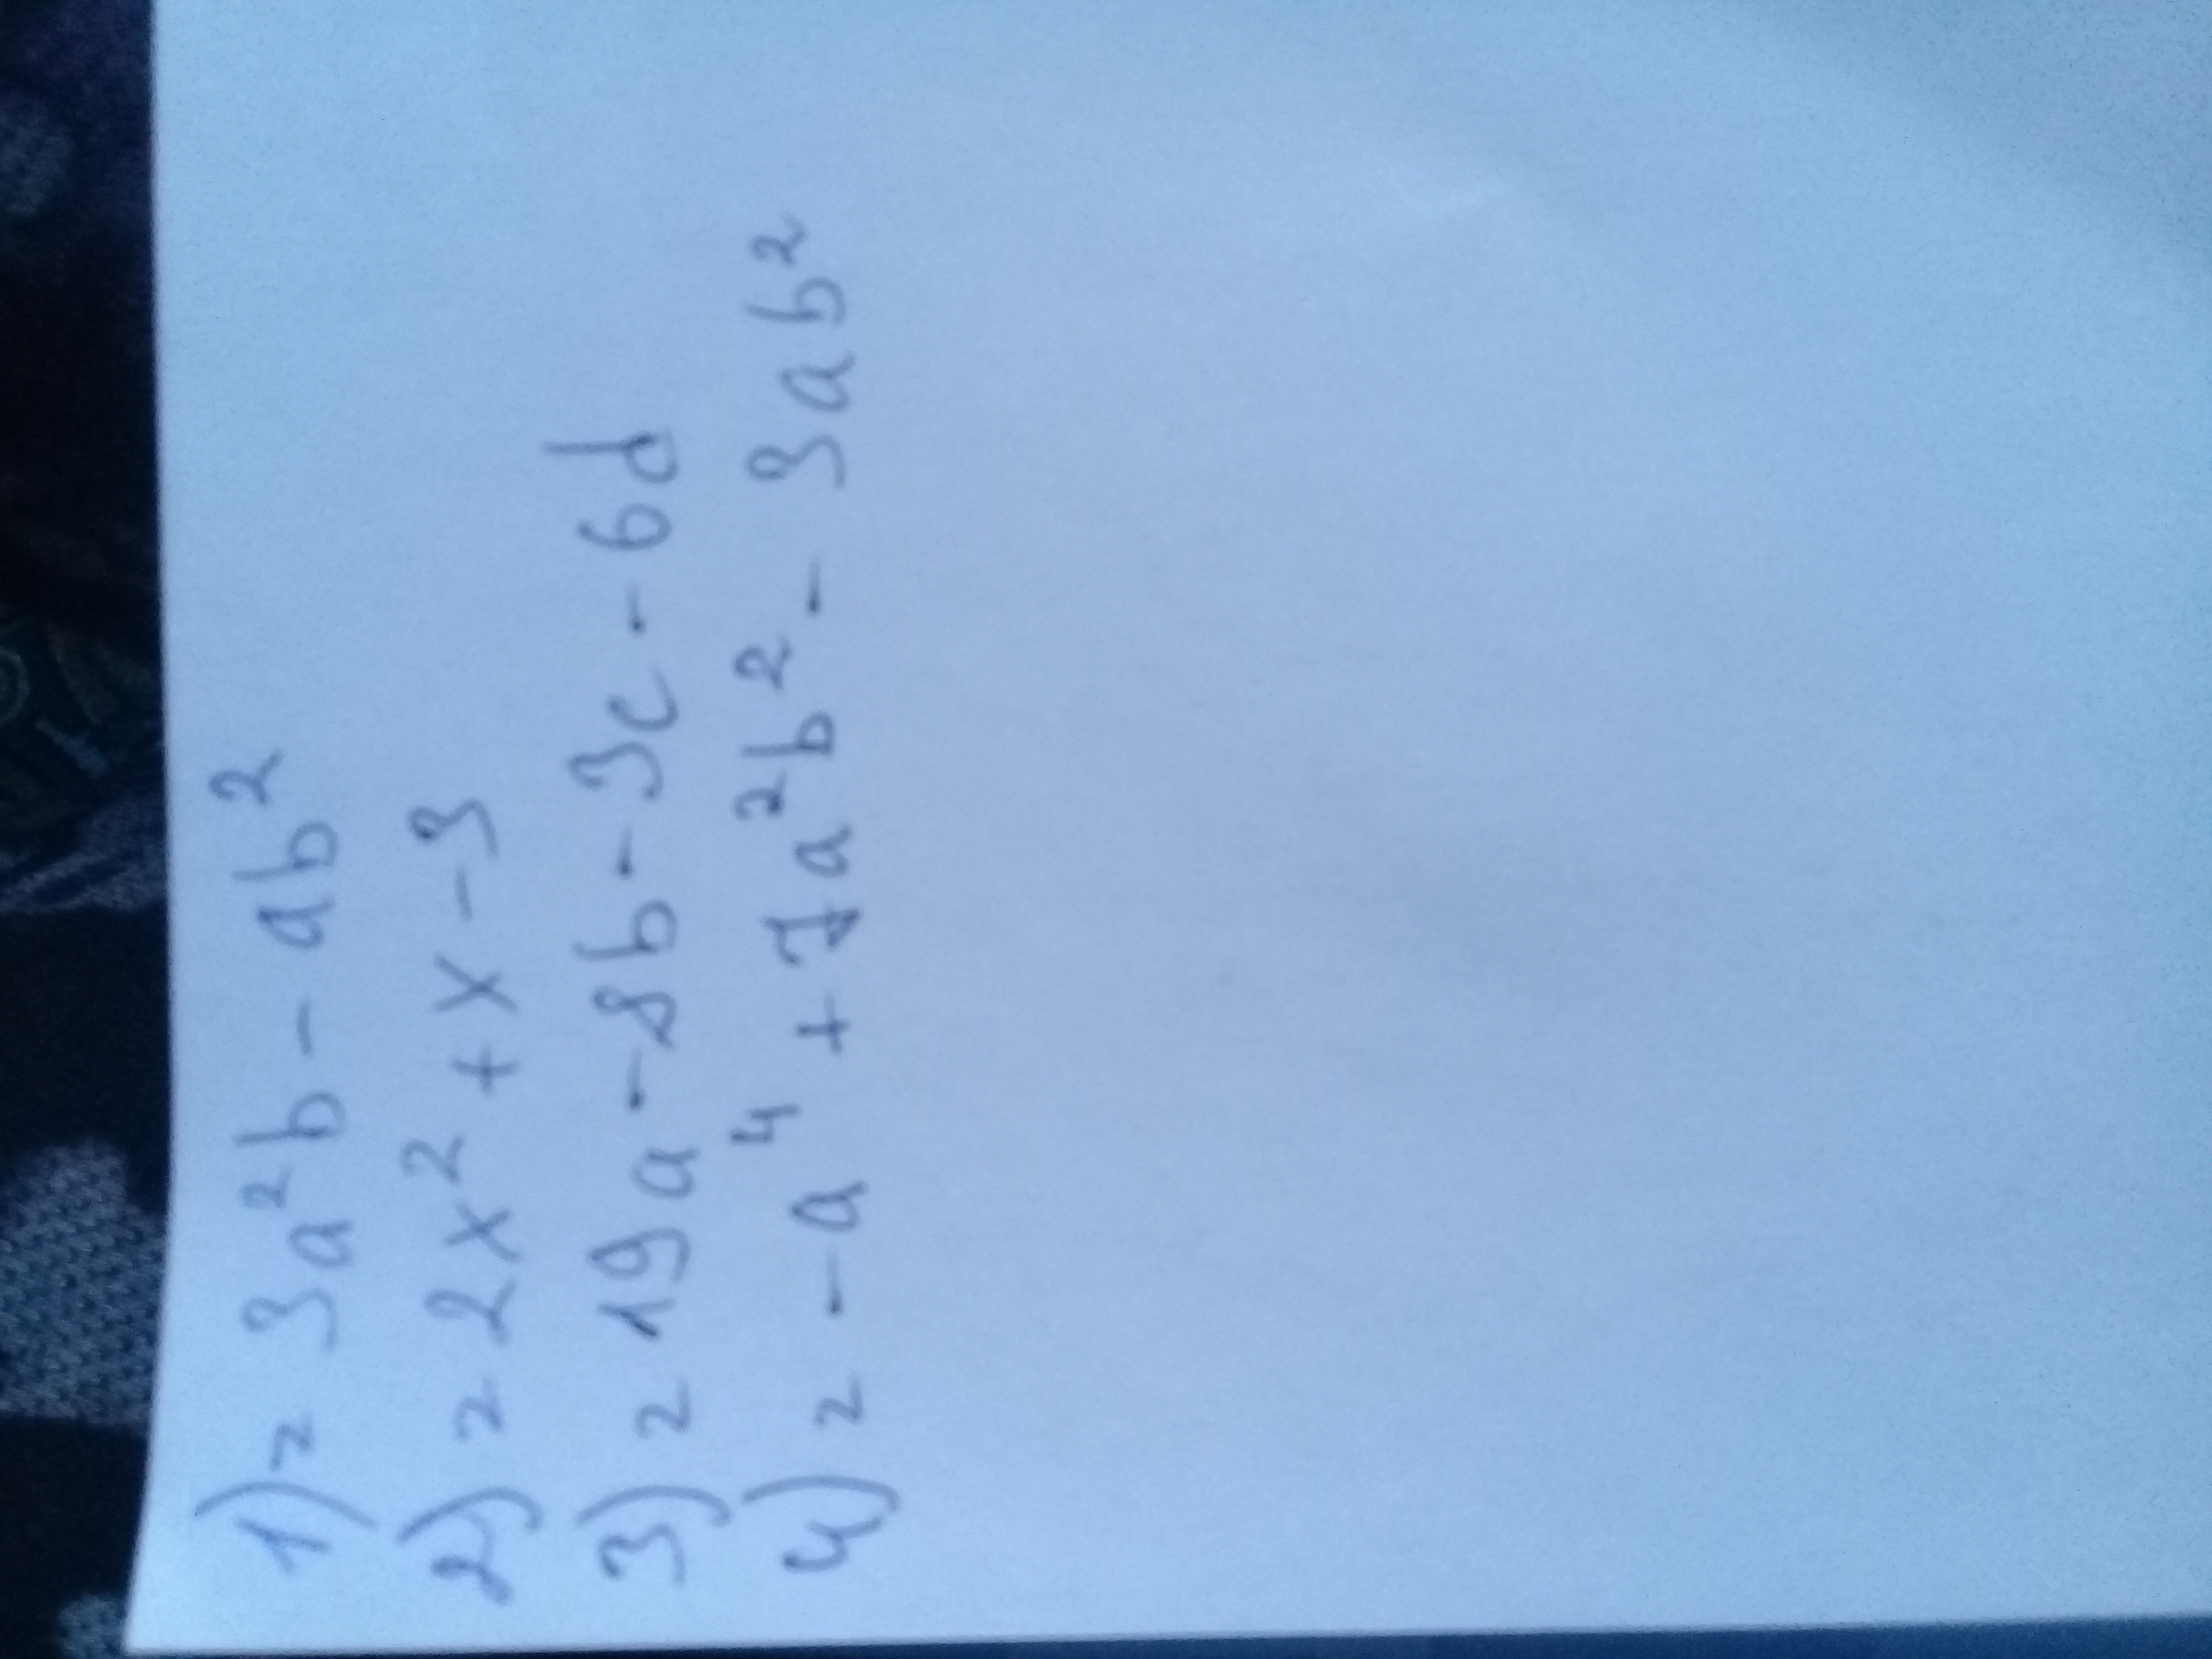 1) = 3a²b - ab²
2) = 2x² + x - 3
3) = 19a - 8b - 3c - 6d
4) = - a⁴ + 7a²b² - 3ab²